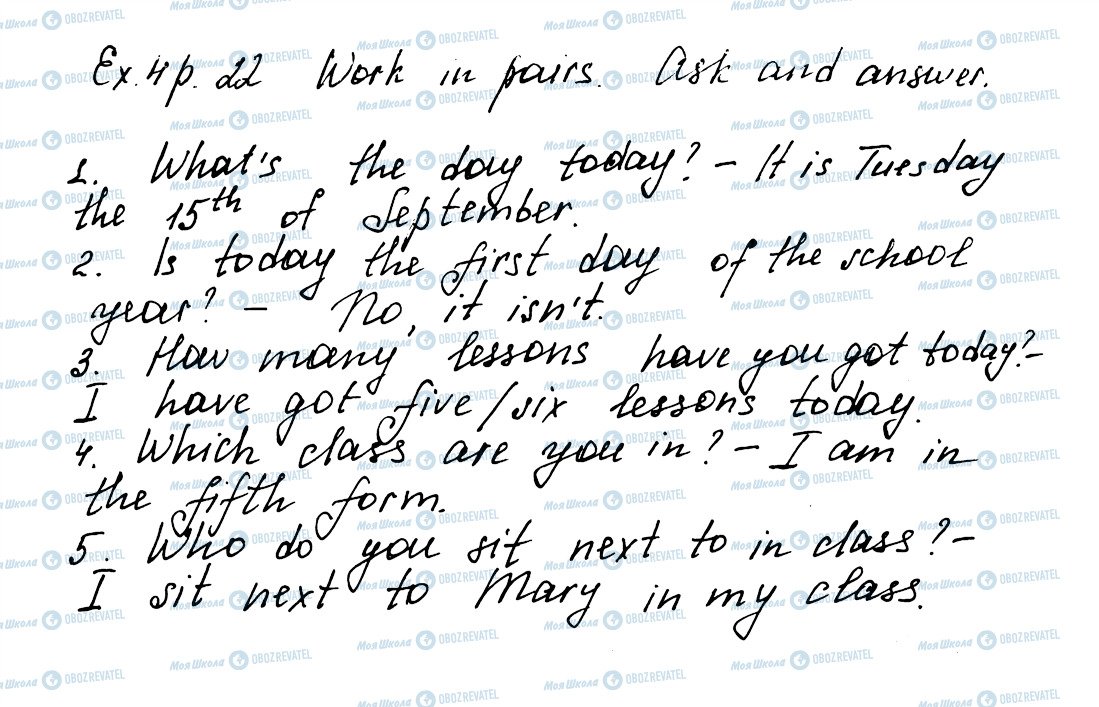 Ex. 4 p. 22 Work in pairs. Ask and answer.
1. What's the day today? - It is Tuesday
the 15th of September.
2. Is today the first day of the school
year? - No, it isn't.
3. How many lessons have you got today? -
I have got five/six lessons today.
4. Which class are you in? - I am in
the fifth form.
5. Who do you sit next to in class? -
I sit next to Mary in my class.
Моя Школа OBOZREVATEL